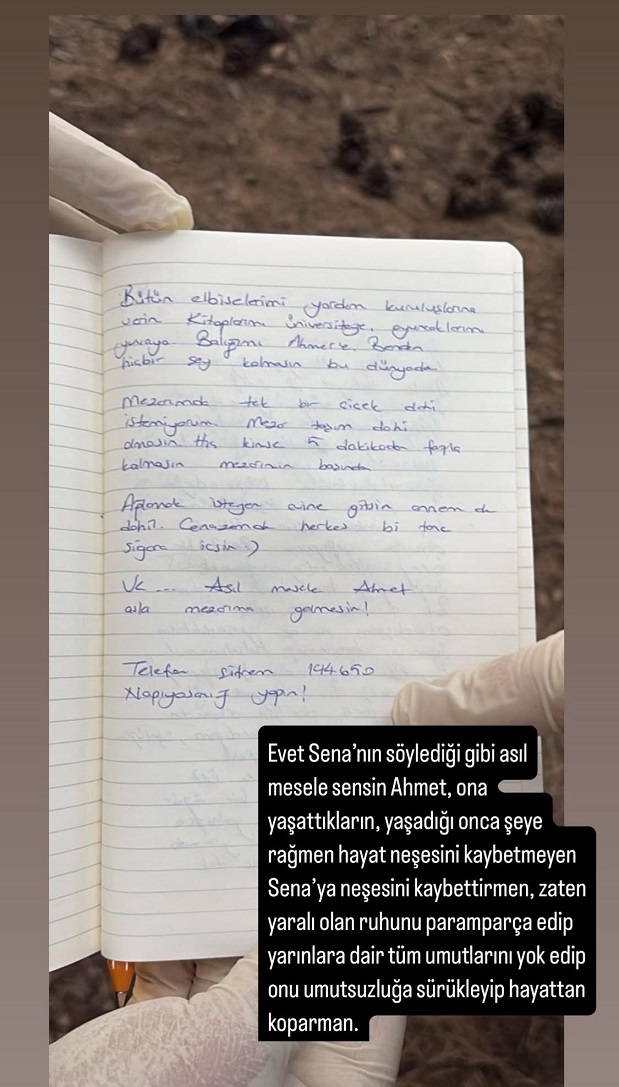 Bütün elbiselerimi yardım kuruluşlarına
verin Kitaplarımı üniversiteye, oyuncaklarımı
yuvaya Balığımı Ahmet'e. Benden
hiçbir şey kalmasın bu dünyada
Mezarımda tek bir çicek dahi
istemiyorum. Mezar taşım dahi
olmasın Hiç kimse 5 dakikadan fazla
kalmasın mezarımın başında
Ağlamak isteyen evine gitsin annem de
dahil. Cenazemde herkes bi tane
sigara içsin :)
Ve .... Asıl mesele Ahmet
asla mezarıma gelmesin!
Telefon şifrem 194650
Napıyosanız yapın!
Evet Sena'nın söylediği gibi asıl
mesele sensin Ahmet, ona
yaşattıkların, yaşadığı onca şeye
rağmen hayat neşesini kaybetmeyen
Sena'ya neşesini kaybettirmen, zaten
yaralı olan ruhunu paramparça edip
yarınlara dair tüm umutlarını yok edip
onu umutsuzluğa sürükleyip hayattan
koparman.